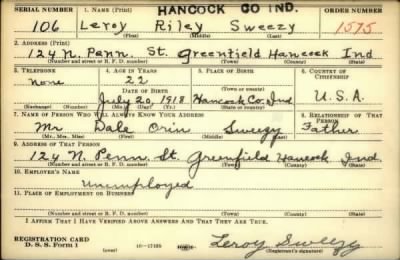 HANCOCK CO IND.
SERIAL NUMBER 1. NAME (Print) ORDER NUMBER
106 Leroy Riley Sweezy 1575
(First) (Middle) (Last)
2. ADDRESS (Print)
124 N. Penn. St. Greenfield Hancock Ind
(Number and street or R. F. D. number) (Town) (County) (State)
3. TELEPHONE 4. AGE IN YEARS 5. PLACE OF BIRTH 6. COUNTRY OF CITIZENSHIP
None 22
DATE OF BIRTH
July 20, 1918 Hancock Co. Ind U.S.A.
(Exchange) (Number) (Mo.) (Day) (Yr.) (State or country)
7. NAME OF PERSON WHO WILL ALWAYS KNOW YOUR ADDRESS 8. RELATIONSHIP OF THAT PERSON
Mr Dale Orin Sweezy Father
(Mr., Mrs., Miss) (First) (Middle) (Last)
9. ADDRESS OF THAT PERSON
124 N. Penn St. Greenfield Hancock Ind.
(Number and street or R. F. D. number) (Town) (County) (State)
10. EMPLOYER'S NAME
Unemployed
11. PLACE OF EMPLOYMENT OR BUSINESS
(Number and street or R. F. D. number) (Town) (County) (State)
I AFFIRM THAT I HAVE VERIFIED ABOVE ANSWERS AND THAT THEY ARE TRUE.
REGISTRATION CARD
D. S. S. Form 1 (over) 16-17105 Leroy Sweezy
(Registrant's signature)